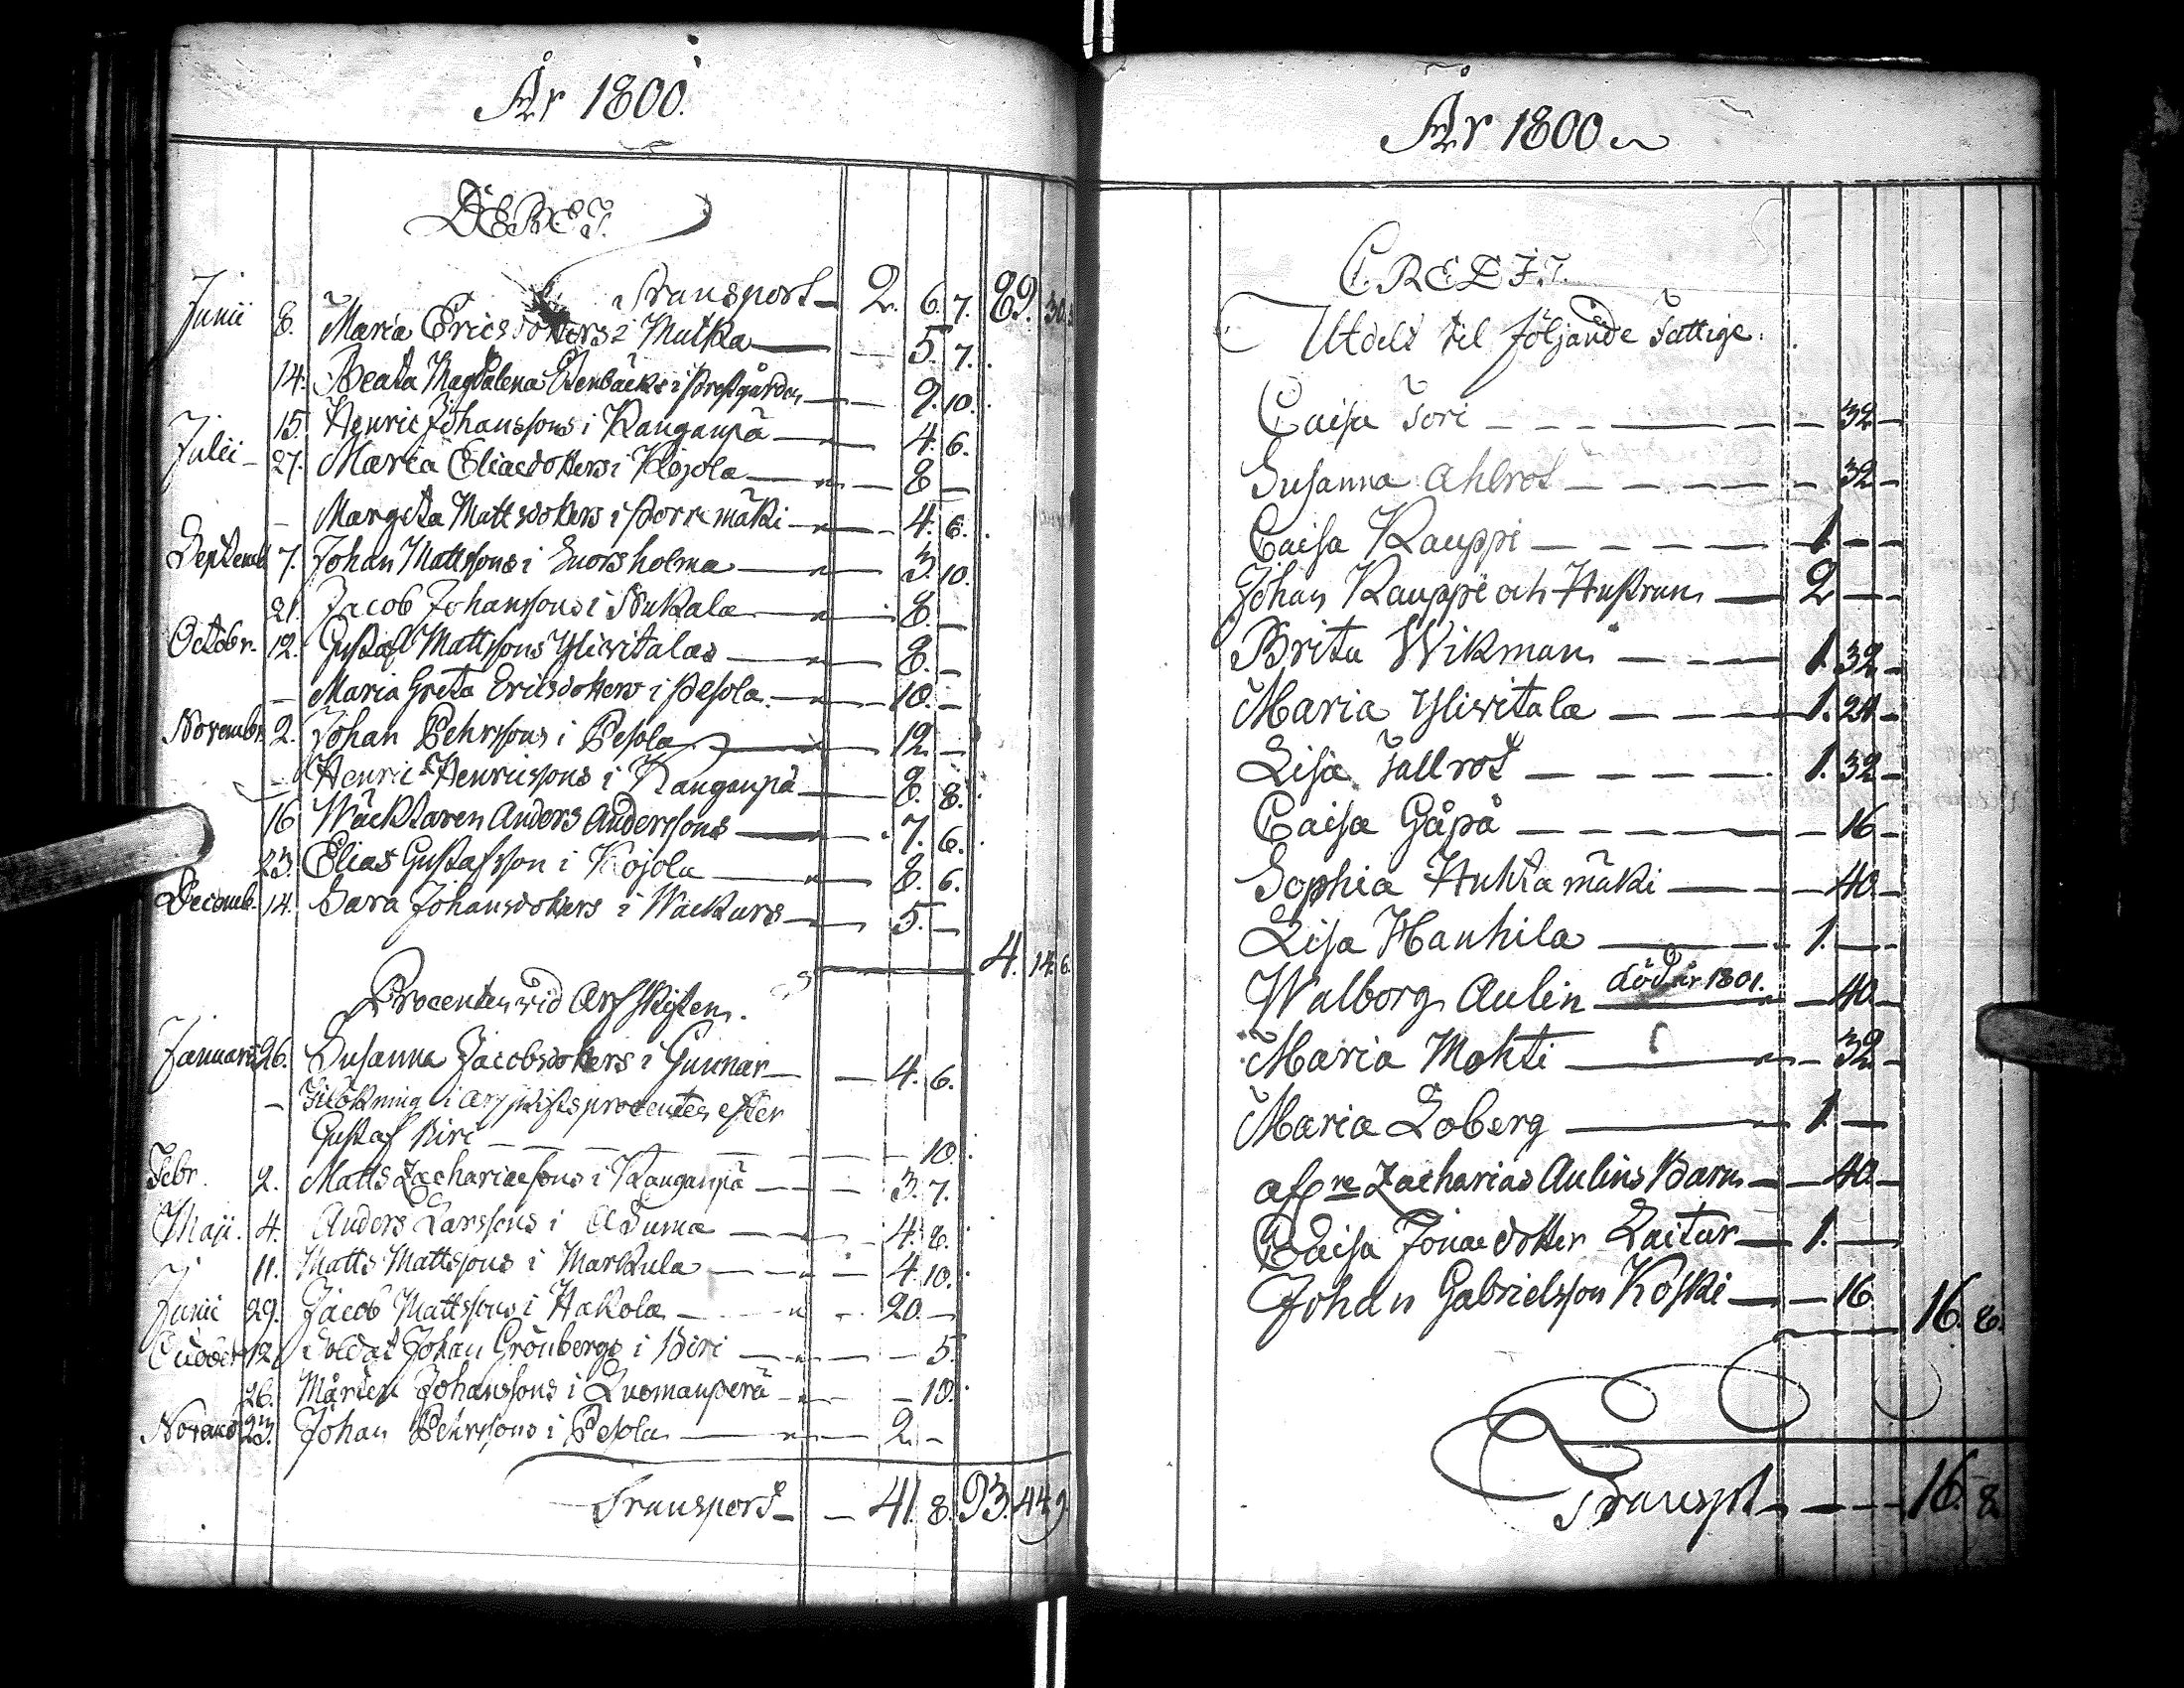 År 1800.
DEBET.
Transport 2. 6. 7. 89. 30.
Junii 8. Maria Ericsdotters i Mutka — 5. 7.
14. Beata Magdalena Stenbäcks i Prestgården — 9. 10.
15. Henric Johanssons i Kanganpä — 4. 6.
Julii 27. Maria Eliaedotters i Kojola — 8 —
— Margeta Mattsdotters i Porrimäki — 4. 6.
Septemb. 7. Johan Mattssons i Snorsholma — 3. 10.
21. Jacob Johanssons i Nukala — 8. —
Octobr. 12. Gustaf Mattssons Yliwitalas — 8. —
— Maria Greta Ericsdotters i Pesola — 10. —
Novembr. 2. Johan Pehrssons i Pesola — 12 —
— Henric Henricssons i Kanganpä — 8. 8.
16 Wäcktaren Anders Anderssons — 7. 6.
23. Elias Gustafsson i Kojola — 8. 6.
Decemb. 14. Sara Johansdotters i Wackurs — 5. —
4. 14. 6.
Procenter vid Arfskiften.
Januarii 26. Susanna Jacobsdotters i Gunnar — 4. 6.
— Tilökning i arfskiftsprocenten efter
Gustaf Kiri — — 10.
Febr. 2. Matts Zachariaesons i Kanganpä — 3. 7.
Maji. 4. Anders Larssons i — 4. 8.
11. Matts Mattssons i Markula — 4. 10.
Junii 29. Jacob Mattssons i Hakola — 20. —
12. Soldat Johan Grönbergs i — 5.
26. Mårten Johanssons i Luomanperä — 10.
23. Johan Pehrssons i Pesola — 2. —
Transport — 41. 8. 93. 44. 9.
År 1800
CREDIT.
Utdelt til följande Fattige.
Caisa Tori — 32 —
Susanna Ahlrot — 32 —
Caisa Kauppi — 1. — —
Johan Kauppi och Hustrun — 2 — —
Brita Wikman — 1. 32 —
Maria Yliwitala — 1. 24 —
Lisa Tallrot — 1. 32 —
Caisa Gåpå — 16 —
Sophia Huhtamäki — 40 —
Lisa Hanhila — 1. — —
Walborg Aulin död år 1801. — 40 —
Maria Mohti — 32 —
Maria Loberg — 1. —
Zacharias Aulins Barn — 40 —
Caisa Jonaedotter Laitur — 1. —
Johan Gabrielsson Koski — 16 16. 8.
Transpt — 16. 8